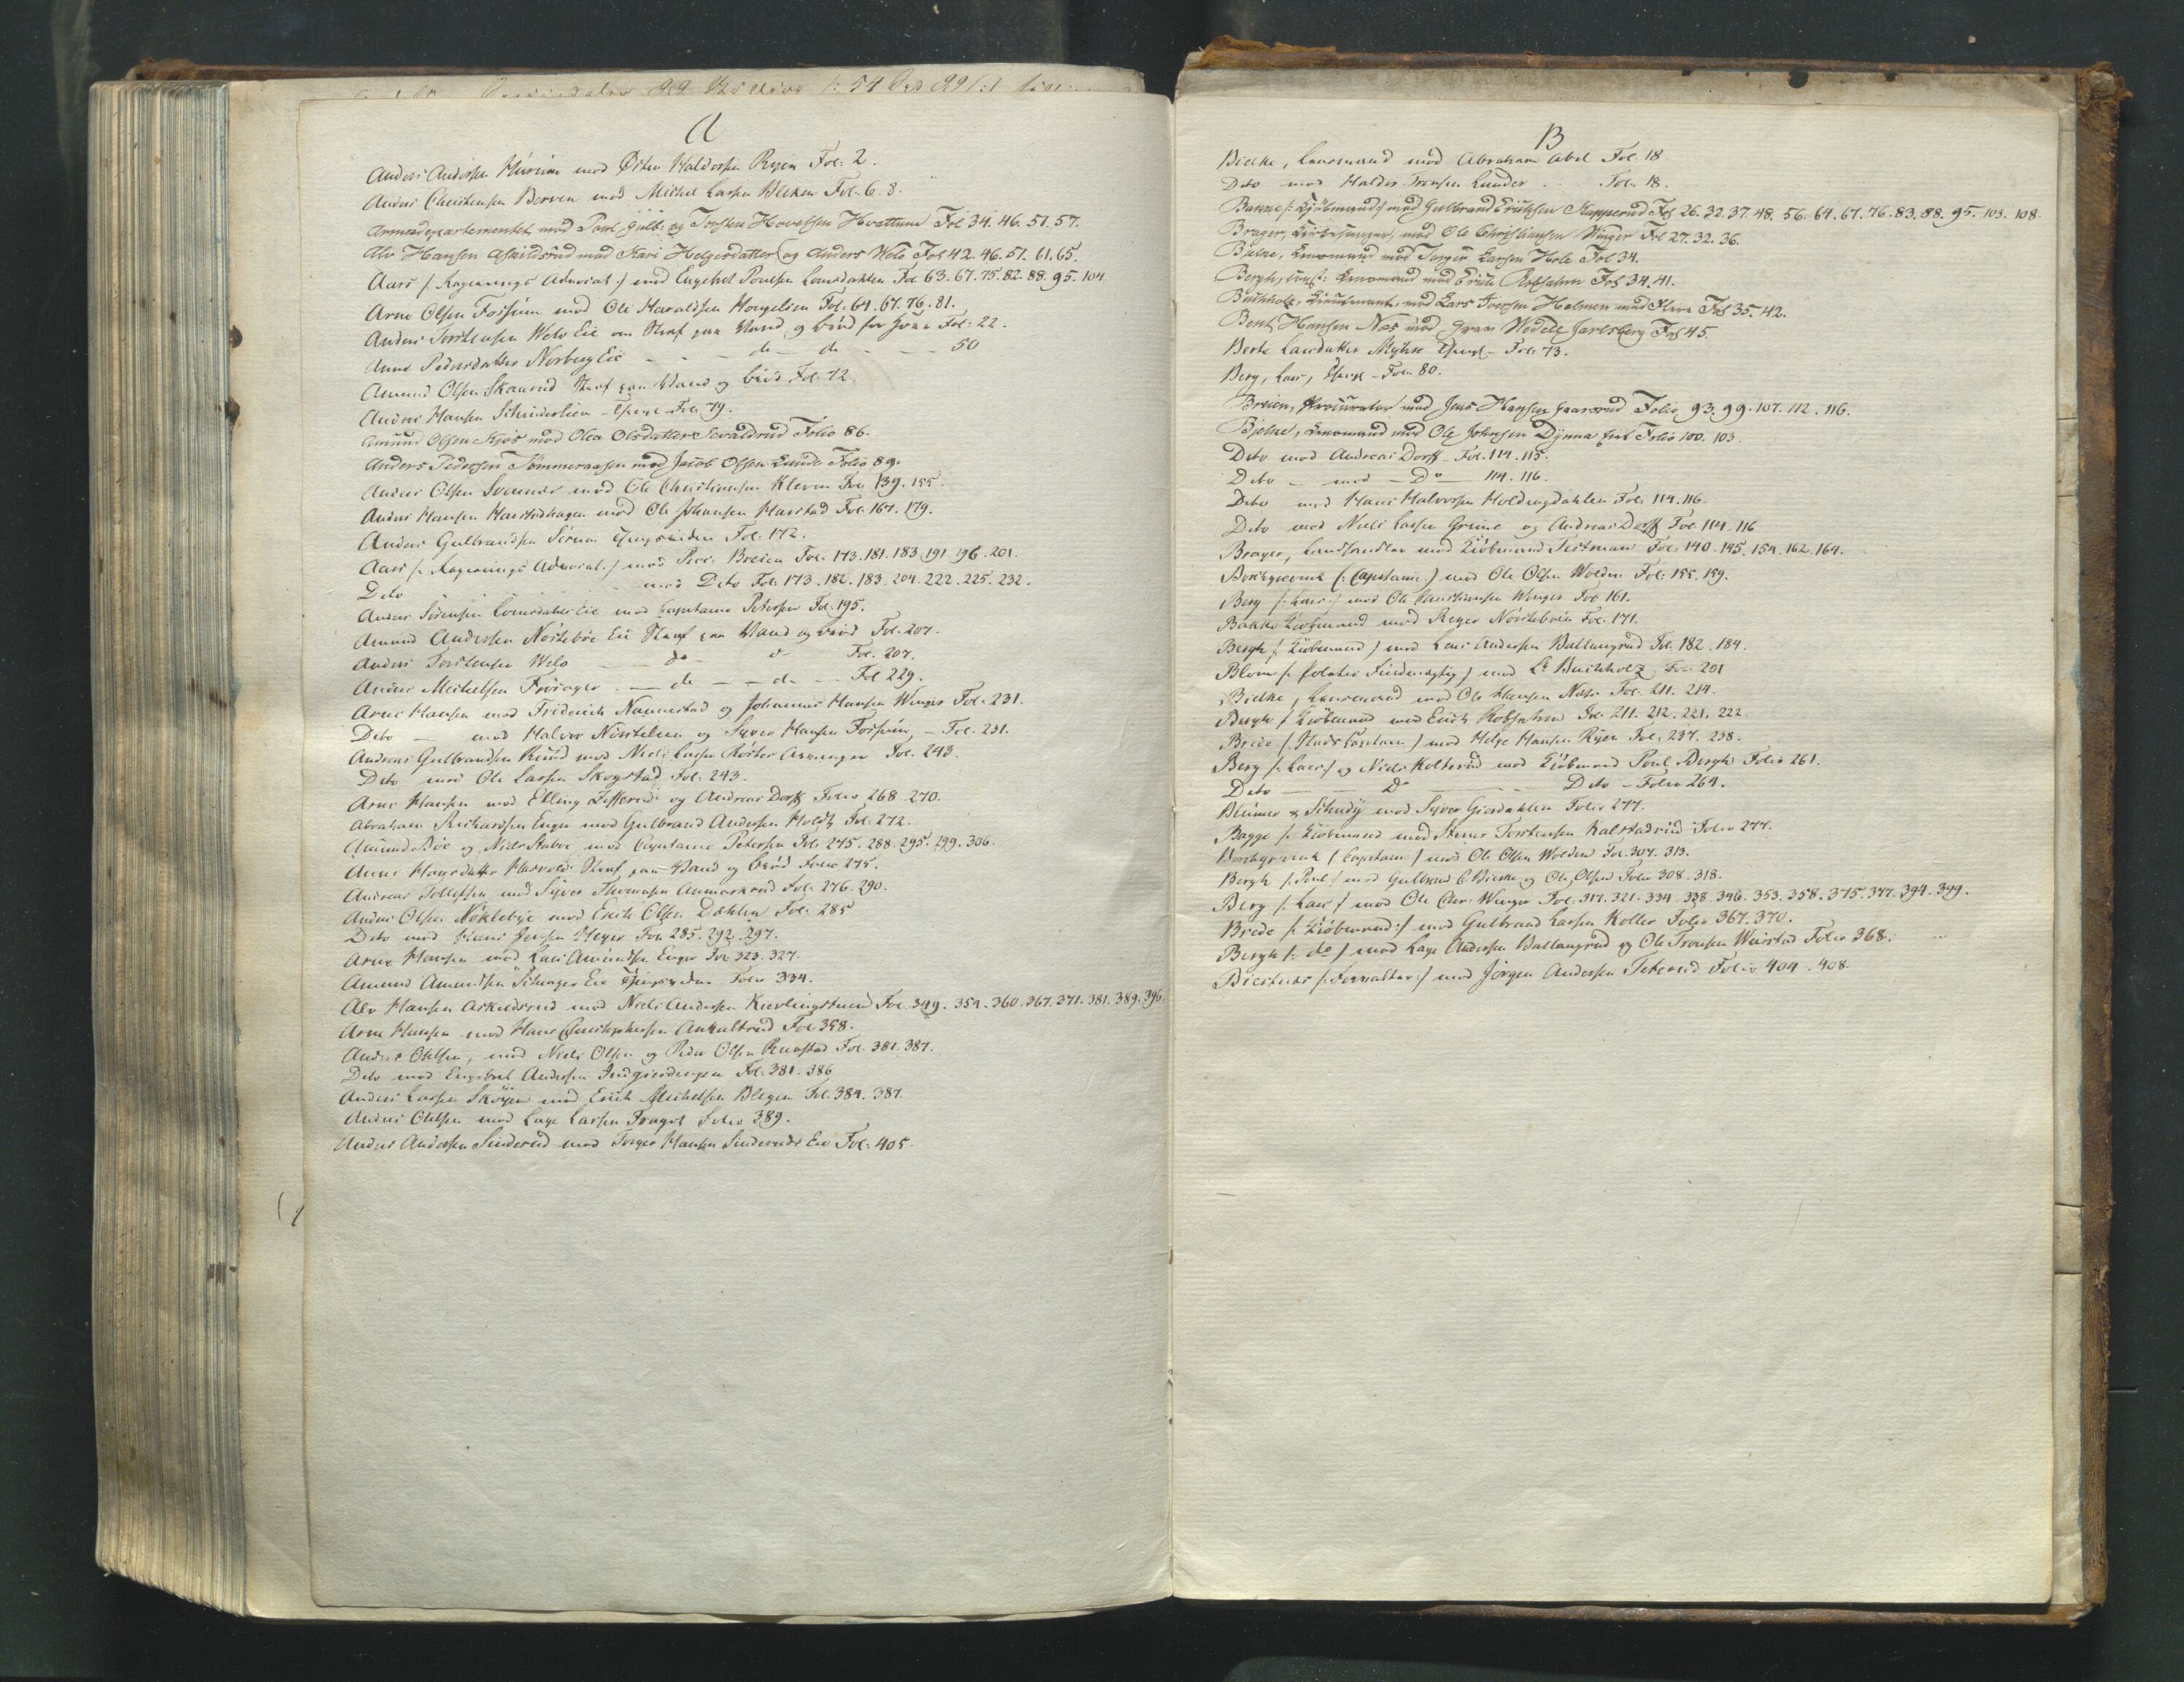 A
Anders Andersen Hursum mod Østen Haldorsen Ryen Fol: 2.
Anders Christensen Berven mod Michel Larsen Bleken Fol. 6. 8.
Armeedepartementet mod Poul Gulb: og Torsten Hovelsen Hvattum Fol 34. 46. 51. 57.
Alv Hansen Askildsrud mod Kari Helgesdatter (og Anders Welo Fol 42. 46. 51. 61. 65.
Aars /: Regierings Advocat :/ mod Engebret Poulsen Lonsdahlen Fol 63. 67. 75. 82. 88. 95. 104
Arne Olsen Fossum mod Ole Haraldsen Hougelien Fol. 64. 67. 76. 81.
Anders Torstensen Welo Eie om Straf paa Vand og brød for Fol: 22.
Anne Pedersdatter Norberg Eie - - - do - do - - - 50
Amund Olsen Skaarud Straf paa Vand og brød Fol. 72.
Anders Hansen Schinderlien - Fol. 79.
Amund Olsen Kjos mod Olea Olsdatter Sevaldrud Folio 86.
Anders Pedersen Tømmeraasen mod Jacob Olsen Lunde Folio 89.
Anders Olsen mod Ole Christiansen Kleven Fol 139. 155.
Anders Hansen Harstadhagen mod Ole Johansen Harstad Fol. 167. 179.
Anders Gulbrandsen Fol: 172.
Aars /: Regierings Advocat. :/ mod Proc: Breien Fol. 173. 181. 183. 191. 196. 201.
Deto mod Deto Fol. 173. 182. 183. 204. 222. 225. 232.
Anders Sørensen Lonsdahls Eie mod Capitaine Petersen Fol. 195.
Amund Andersen Nøstebøe Eie Straf paa Vand og brød Fol. 207.
Anders Torstensen Welo - do - d - Fol. 207.
Anders Michelsen Frøroger - do - - do - Fol 229.
Arne Hansen mod Friderich Nannestad og Johannes Hansen Winger Fol. 231.
Deto - mod Halvor Nøstelien og Syver Hansen Fossum, - Fol. 231.
Andreas Gulbrandsen Ruud mod Niels Larsen Røster Fol. 243.
Deto mod Ole Larsen Skogstad Fol. 243.
Arne Hansen mod Elling og Andreas Dorff Folio 268. 270.
Abraham Richardsen Enger mod Gulbrand Andersen Holdt, Fol. 272.
Amund Bøe og Niels Stabec mod Capitaine Petersen Fol. 275. 288. 295. 299. 306.
Anne Hansdatter Straf paa Vand og brød Folio 275.
Andreas Tollefsen mod Syver Thomasen Fol. 276. 290.
Anders Olsen Nøklebye mod Erich Olsen Dahlen Fol. 285
Deto mod Jensen Meyer Fol 285. 292. 297.
Arne Hansen mod Lars Amundsen Enger Fol 323. 327.
Amund Amundsen Eie Folio 334.
Alv Hansen Askildsrud mod Niels Andersen Fol. 349. 354. 360. 367. 371. 381. 389. 396.
Arne Hansen mod Hans Christophersen Fol 358.
Anders Ottesen, mod Niels Olsen og Peder Olsen Fol. 381. 387.
Deto mod Engebret Andersen Fol. 381. 386
Anders Larsen Skøyen mod Erich Michelsen Blegen Fol. 384. 387.
Anders Olsen mod Lage Larsen Fragot Folio 389.
Anders Andersen Sinderud mod Torger Hansen Sinderuds Eie Fol. 405.
B
Bielke, Lensmand mod Abraham Abel Fol. 18
Deto mod Haldor Tronsen Lunder. Fol. 18.
/: Kjøbmand :/ mod Gulbrand Erichsen Klapperud Fol 26. 32. 37. 48. 56. 64. 67. 76. 83. 88. 95. 103. 108.
Brager, Kirkesanger, mod Ole Christiansen Winger Fol 27. 32. 36.
Bjelke, Lensmand mod Torger Larsen Hole Fol 34.
Bergh, Lensmand mod Erich Robsahm Fol 34. 41.
Buchholz, Lieutenant, mod Lars Iversen Helmen med Flere Fol 35. 42.
Bent Hansen Næs mod Grev Wedell Jarlsberg Fol 45.
Berte Larsdatter Myhre - Fol. 73.
Berg, Lars, - Fol. 80.
Breien, Procurator mod Jens Hansen Folio, 93. 99. 107. 112. 116.
Bjelke, Lensmand mod Ole Johnsen Dynna Folio 100. 103.
Deto mod Andreas Dorff - Fol. 114. 115.
Deto - mod - Do - 114. 116.
Deto mod Hans Halvorsen Holdingdahlen Fol: 114. 116.
Deto mod Niels Larsen Grine og Andreas Dorff Fol 114. 116
Brager, Landhandler mod Kiøbmand Testman Fol: 140. 145. 154. 162. 164.
Borchgrevink (: Capitaine :) mod Ole Olsen Wolden Fol: 155. 159.
Berg /: Lars :/ mod Ole Christiansen Winger Fol 161.
Bakke Kiøbmand mod Reyer Nøsteboen Fol. 171.
Bergh /: Kiøbmand / mod Lars Andersen Ballangrud Fol. 182. 184.
Blom /: / mod Lt Buchholz, Fol 201
Bielke, Lensmand mod Ole Hansen Fol: 211. 214.
Bergh / Kiøbmand mod Erich Robsahm Fol. 211. 212. 221. 222.
Brede / Stads Capitain / mod Helge Hansen Ryen Fol: 237. 238.
Berg /: Lars :/ og Niels Kolterud mod Kiøbmand Poul Bergh Folio 261.
Deto - Do Deto - Folio 264.
Blümer & Schudÿ mod Syver Gierdahlen Folio 277.
Bagge /: Kiøbmand mod Stener Torstensen Kalstadrud Folio 277.
Borchgrevink / Capitain / mod Ole Olsen Wolden Fol. 307. 313.
Bergh /: Poul / mod Gulbrand og Ole Olsen Folio 308. 318.
Berg /: Lars / mod Ole Chr: Winger Fol. 317. 321. 334. 338. 346. 353. 358. 375. 377. 394. 399.
Brede /: Kiøbmand :/ mod Gulbrand Larsen Koller Folio 367. 370.
Bergh /: do / mod Lage Andersen Ballangrud og Ole Tronsen Folio 368.
/: Forvalter :/ mod Jørgen Andersen Teterud Folio 404. 408.